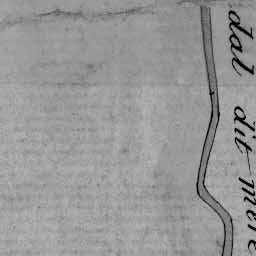 dal dit mere